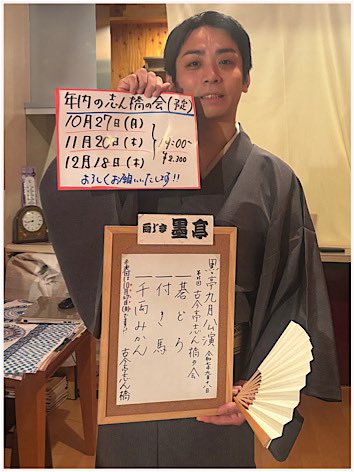 年内の志ん橋の会(予定)
10月27日(月)
11月20日(木)
12月18日(木)
¥2,300
よろしくお願いいたします!!
向じま 墨亭
墨亭九月公演
古今亭志ん橋の会
一 碁どろ
一 付き馬
一 千両みかん
古今亭志ん橋